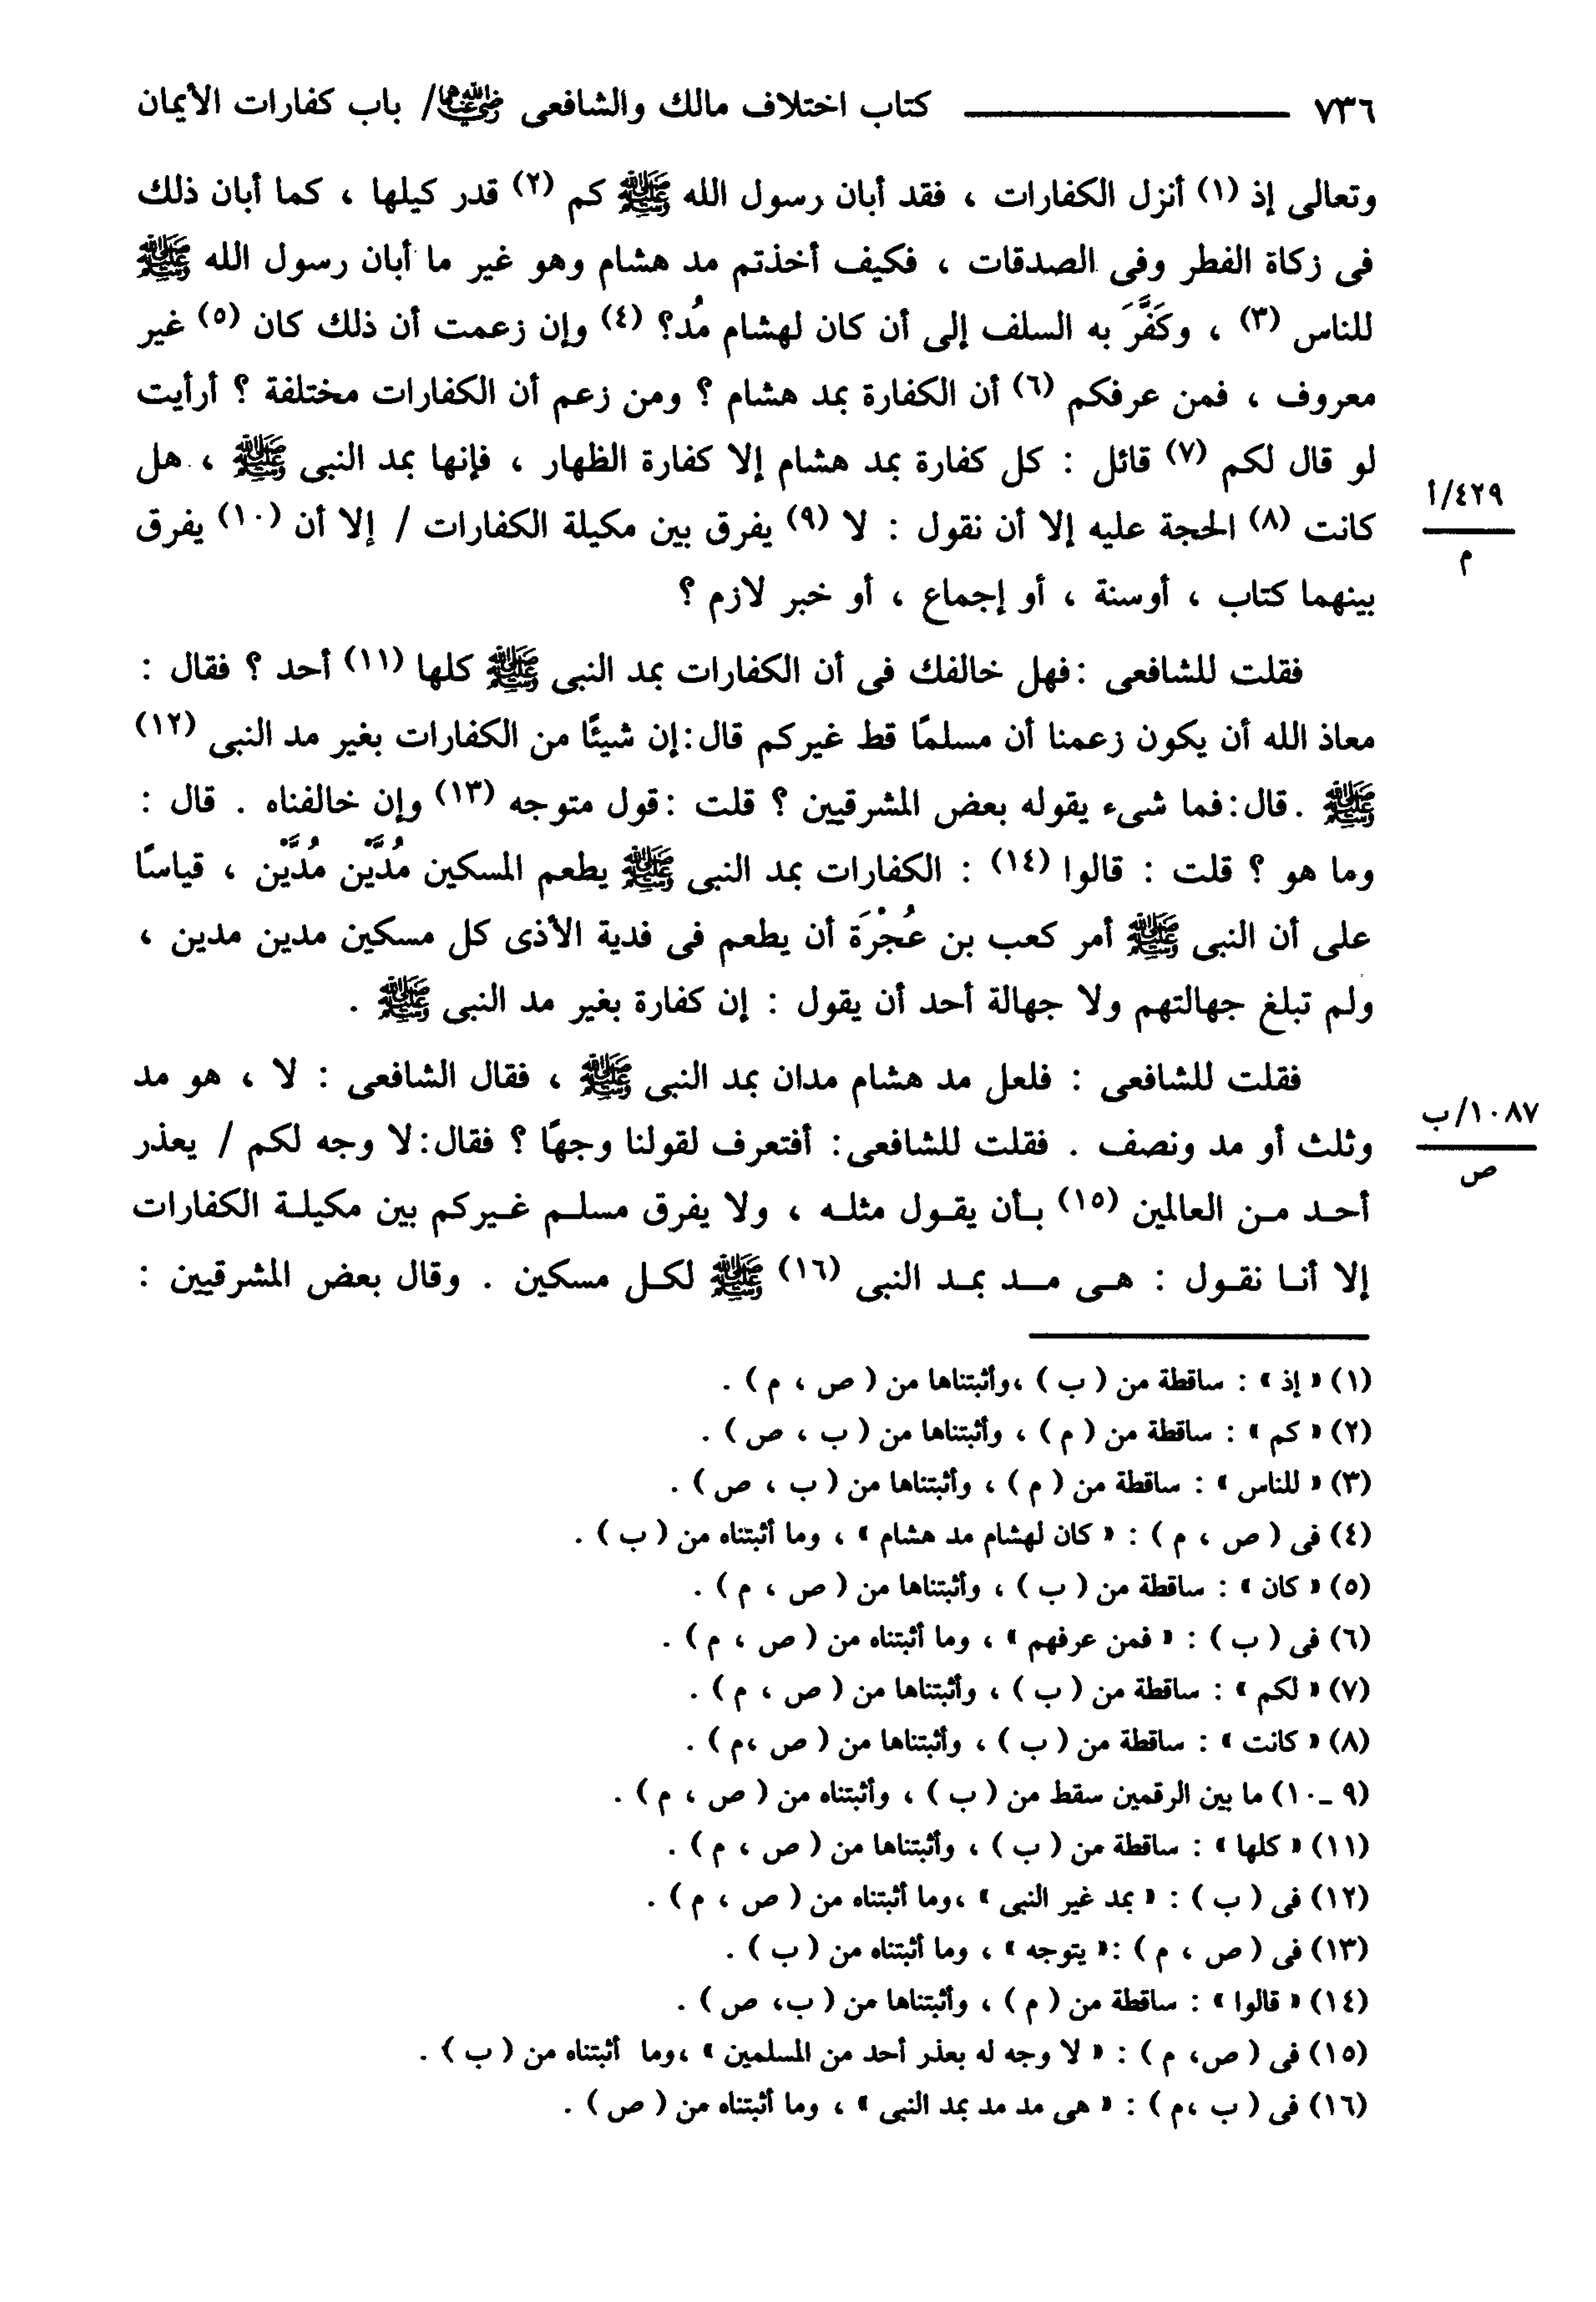 ٧٣٦ ــــــــــــــ كتاب اختلاف مالك والشافعى رضي الله عنهما/ باب كفارات الأيمان
وتعالى إذ (١) أنزل الكفارات ، فقد أبان رسول الله ﷺ كم (٢) قدر كيلها ، كما أبان ذلك
فى زكاة الفطر وفى الصدقات ، فكيف أخذتم مد هشام وهو غير ما أبان رسول الله ﷺ
للناس (٣) ، وكَفَّرَ به السلف إلى أن كان لهشام مُد؟ (٤) وإن زعمت أن ذلك كان (٥) غير
معروف ، فمن عرفكم (٦) أن الكفارة بمد هشام ؟ ومن زعم أن الكفارات مختلفة ؟ أرأيت
لو قال لكم (٧) قائل : كل كفارة بمد هشام إلا كفارة الظهار ، فإنها بمد النبى ﷺ ، هل
٤٢٩/أ
كانت (٨) الحجة عليه إلا أن نقول : لا (٩) يفرق بين مكيلة الكفارات / إلا أن (١٠) يفرق
م
بينهما كتاب ، أوسنة ، أو إجماع ، أو خبر لازم ؟
فقلت للشافعى :فهل خالفك فى أن الكفارات بمد النبى ﷺ كلها (١١) أحد ؟ فقال :
معاذ الله أن يكون زعمنا أن مسلمًا قط غيركم قال:إن شيئًا من الكفارات بغير مد النبى (١٢)
ﷺ .قال:فما شىء يقوله بعض المشرقيين ؟ قلت :قول متوجه (١٣) وإن خالفناه . قال :
وما هو ؟ قلت : قالوا (١٤) : الكفارات بمد النبى ﷺ يطعم المسكين مُدَّيْن مُدَّيْن ، قياسًا
على أن النبى ﷺ أمر كعب بن عُجْرَة أن يطعم فى فدية الأذى كل مسكين مدين مدين ،
ولم تبلغ جهالتهم ولا جهالة أحد أن يقول : إن كفارة بغير مد النبى ﷺ .
فقلت للشافعى : فلعل مد هشام مدان بمد النبى ﷺ ، فقال الشافعى : لا ، هو مد
١٠٨٧/ب
وثلث أو مد ونصف . فقلت للشافعى: أفتعرف لقولنا وجهًا ؟ فقال:لا وجه لكم / يعذر
ص
أحد من العالمين (١٥) بأن يقول مثله ، ولا يفرق مسلم غيركم بين مكيلة الكفارات
إلا أنا نقول : هى مد بمد النبى (١٦) ﷺ لكل مسكين . وقال بعض المشرقيين :
(١) « إذ » : ساقطة من ( ب ) ،وأثبتناها من ( ص ، م ) .
(٢) « كم » : ساقطة من ( م ) ، وأثبتناها من ( ب ، ص ) .
(٣) « للناس » : ساقطة من ( م ) ، وأثبتناها من ( ب ، ص ) .
(٤) فى ( ص ، م ) : « كان لهشام مد هشام » ، وما أثبتناه من ( ب ) .
(٥) « كان » : ساقطة من ( ب ) ، وأثبتناها من ( ص ، م ) .
(٦) فى ( ب ) : « فمن عرفهم » ، وما أثبتناه من ( ص ، م ) .
(٧) « لكم » : ساقطة من ( ب ) ، وأثبتناها من ( ص ، م ) .
(٨) « كانت » : ساقطة من ( ب ) ، وأثبتناها من ( ص ،م ) .
(٩ ـ ١٠) ما بين الرقمين سقط من ( ب ) ، وأثبتناه من ( ص ، م ) .
(١١) « كلها » : ساقطة من ( ب ) ، وأثبتناها من ( ص ، م ) .
(١٢) فى ( ب ) : « بمد غير النبى » ،وما أثبتناه من ( ص ، م ) .
(١٣) فى ( ص ، م ) :« يتوجه » ، وما أثبتناه من ( ب ) .
(١٤) « قالوا » : ساقطة من ( م ) ، وأثبتناها من ( ب، ص ) .
(١٥) فى ( ص، م ) : « لا وجه له بعذر أحد من المسلمين » ،وما أثبتناه من ( ب ) .
(١٦) فى ( ب ،م ) : « هى مد مد بمد النبى » ، وما أثبتناه من ( ص ) .